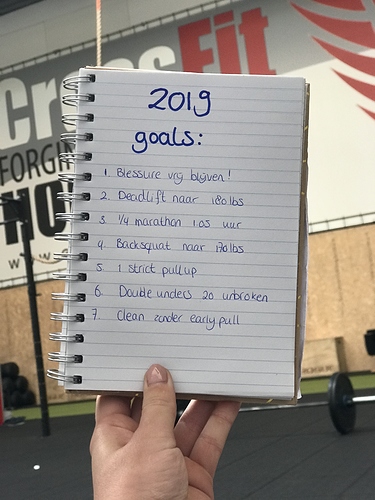 CrossFit
FORGIN
HO
W W
2019
goals:
1. Blessure vrij blijven!
2. Deadlift naar 180 lbs
3. 1/4 marathon 1.05 uur
4. Backsquat naar 170 lbs
5. 1 strict pull up
6. Double unders 20 unbroken
7. Clean zonder early pull